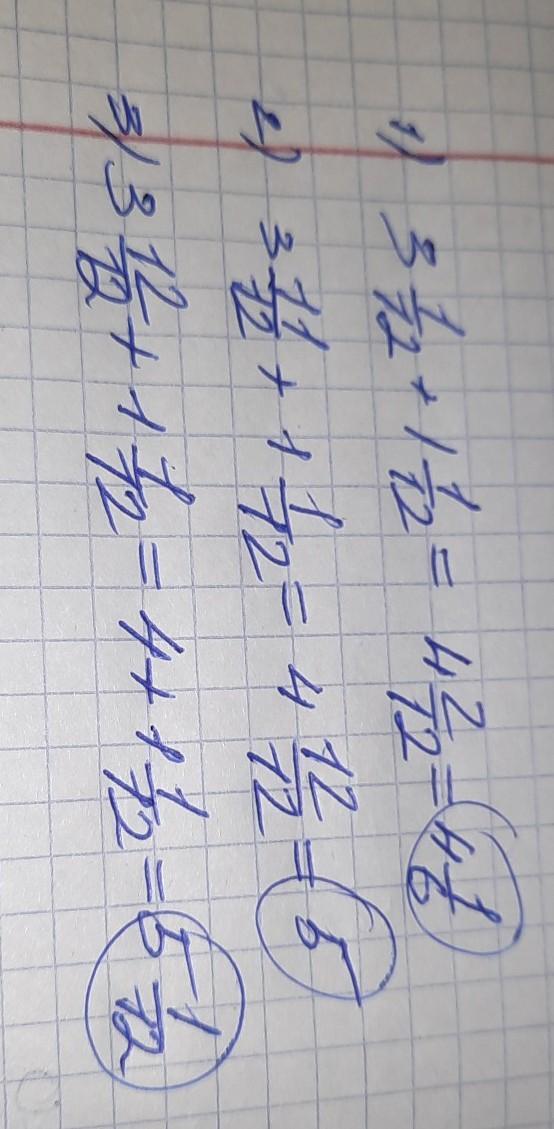 1) 3 1/12 + 1 1/12 = 4 2/12 = 4 1/6
2) 3 11/12 + 1 1/12 = 4 12/12 = 5
3) 3 12/12 + 1 1/12 = 4 + 1 1/12 = 5 1/12